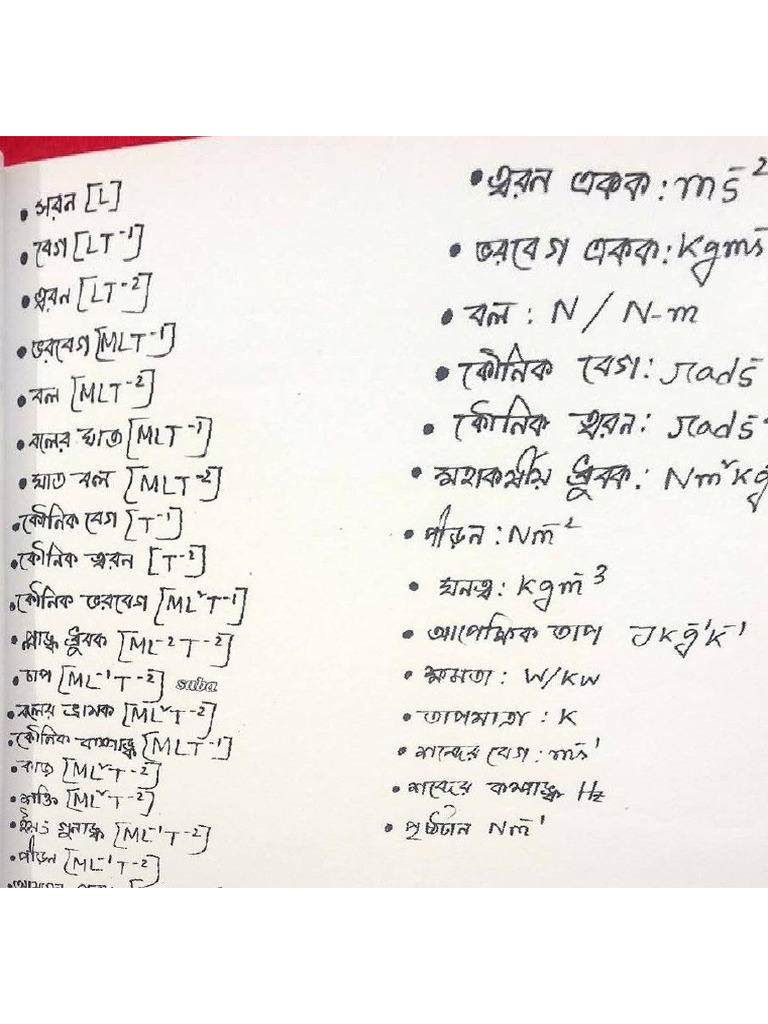 • সরন [L]
• বেগ [LT⁻¹]
• ত্বরন [LT⁻²]
• ভরবেগ [MLT⁻¹]
• বল [MLT⁻²]
• বলের ঘাত [MLT⁻¹]
• ঘাত বল [MLT⁻²]
• কৌনিক বেগ [T⁻¹]
• কৌনিক ত্বরন [T⁻²]
• কৌনিক ভরবেগ [ML²T⁻¹]
• প্লাঙ্ক ধ্রুবক [ML⁻²T⁻²]
• চাপ [ML⁻¹T⁻²] saba
• বলের ভ্রামক [ML²T⁻²]
• কৌনিক কম্পাঙ্ক [MLT⁻¹]
• কাজ [ML²T⁻²]
• শক্তি [ML²T⁻²]
• ইয়ং গুনাঙ্ক [ML⁻¹T⁻²]
• পীড়ন [ML⁻¹T⁻²]
• ত্বরন একক : ms⁻²
• ভরবেগ একক : kgms⁻
• বল : N / N-m
• কৌনিক বেগ : rads⁻
• কৌনিক ত্বরন : rads⁻
• মহাকর্ষীয় ধ্রুবক : Nm²kg
• পীড়ন : Nm⁻²
• ঘনত্ব : kgm⁻³
• আপেক্ষিক তাপ Jkg⁻¹K⁻¹
• ক্ষমতা : W/KW
• তাপমাত্রা : K
• শব্দের বেগ : ms⁻¹
• শব্দের কম্পাঙ্ক Hz
• পৃষ্ঠটান Nm⁻¹